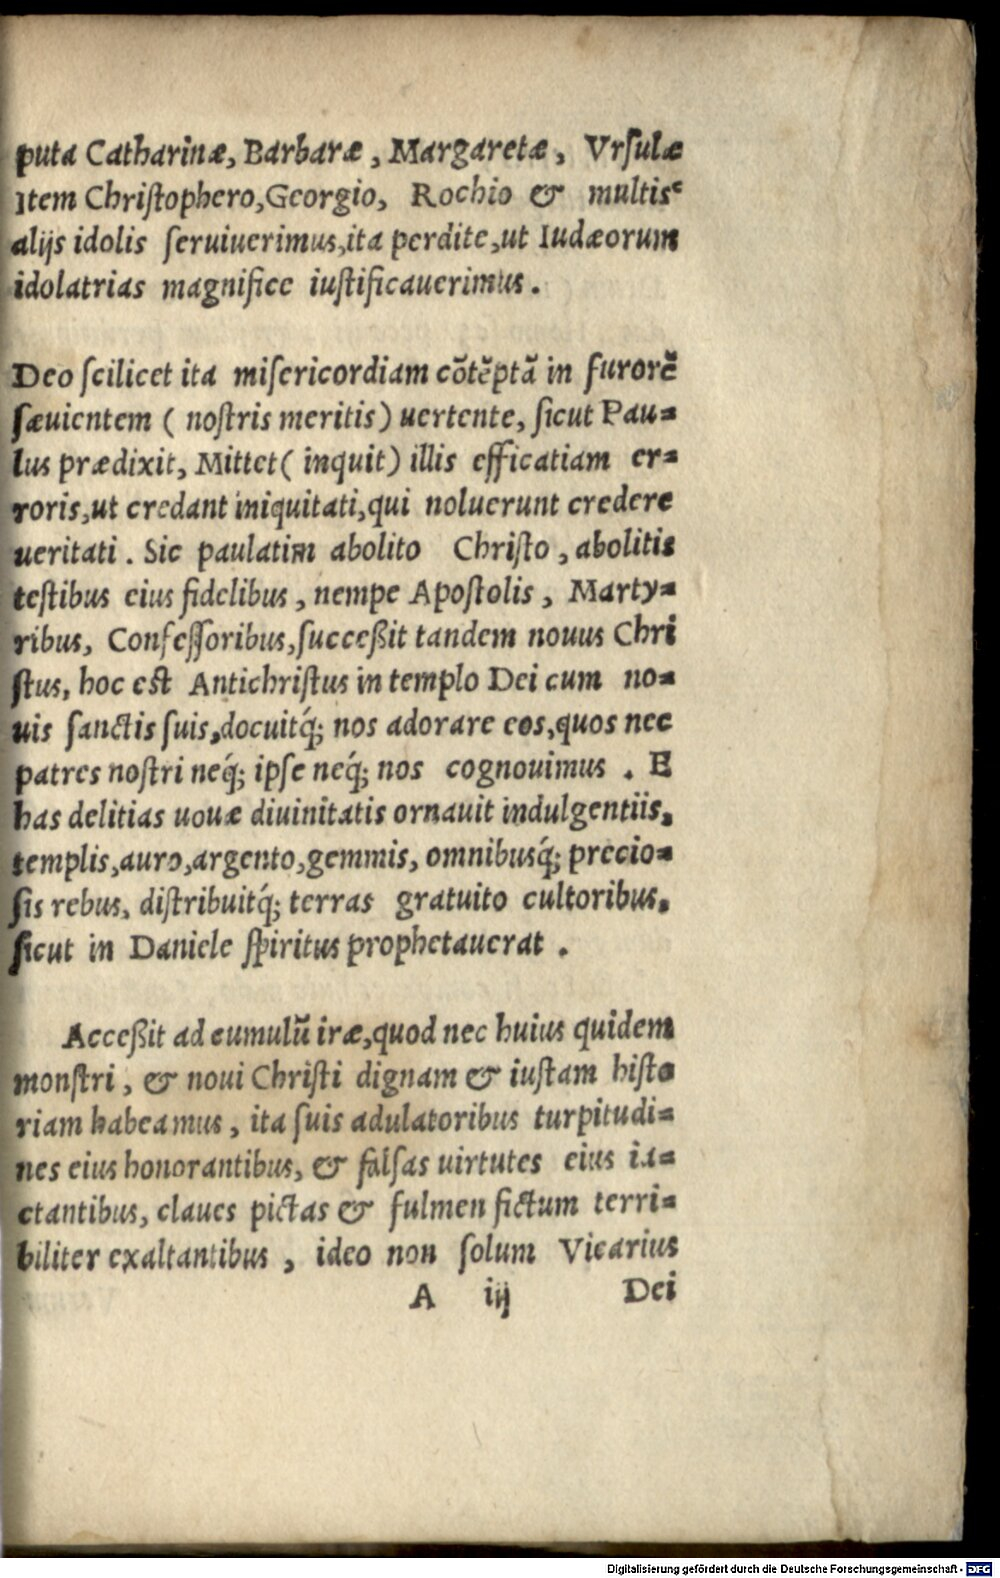 puta Catharinæ, Barbaræ, Margaretæ, Vrſulæ
Item Chriſtophero, Georgio, Rochio & multis
alijs idolis ſeruiuerimus, ita perdite, ut Iudæorum
idolatrias magnifice iuſtificauerimus.
Deo ſcilicet ita miſericordiam cōtēptā in furorē
ſæuientem ( noſtris meritis ) uertente, ſicut Pau=
lus prædixit, Mittet ( inquit ) illis efficatiam er=
roris, ut credant iniquitati, qui noluerunt credere
ueritati. Sic paulatim abolito Chriſto, abolitis
teſtibus eius fidelibus, nempe Apoſtolis, Marty=
ribus, Confeſſoribus, ſucceßit tandem nouus Chri
ſtus, hoc est Antichriſtus in templo Dei cum no=
uis ſanctis ſuis, docuitq́; nos adorare eos, quos nec
patres noſtri neq́; ipſe neq́; nos cognouimus. E
has delitias uouæ diuinitatis ornauit indulgentiis,
templis, auro, argento, gemmis, omnibusq́; precio=
ſis rebus, diſtribuitq́; terras gratuito cultoribus,
ſicut in Daniele ſpiritus prophetauerat.
Acceßit ad cumulū iræ, quod nec huius quidem
monſtri, & noui Chriſti dignam & iuſtam hiſto
riam habeamus, ita ſuis adulatoribus turpitudi=
nes eius honorantibus, & falſas uirtutes eius ia=
ctantibus, claues pictas & fulmen fictum terri=
biliter exaltantibus, ideo non ſolum Vicarius
A iij Dei
Digitalisierung gefördert durch die Deutsche Forschungsgemeinschaft - DFG